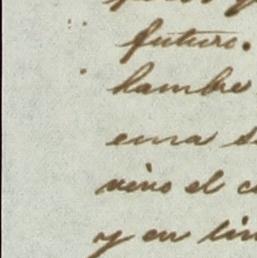 futuro.
hambre
ema s
vino el c
y en lin